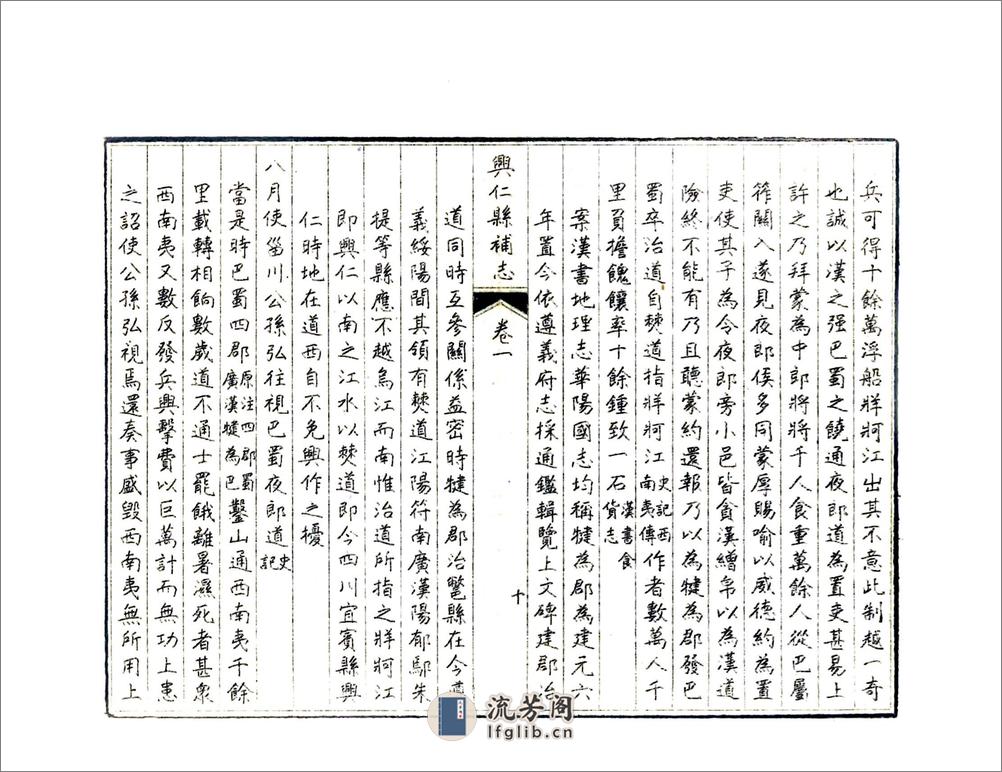 兵可得十餘萬浮船牂牁江出其不意此制越一奇
也誠以漢之强巴蜀之饒通夜郎道為置吏甚易上
許之乃拜蒙為中郎將將千人食重萬餘人從巴屬
筰關入遂見夜郎侯多同蒙厚賜喻以威德約為置
吏使其子為令夜郎旁小邑皆貪漢繒帛以為漢道
險終不能有乃且聽蒙約還報乃以為犍為郡發巴
蜀卒治道自僰道指牂牁江史記西南夷傳作者數萬人千
里負擔餽饟率十餘鍾致一石漢書食貨志
案漢書地理志華陽國志均稱犍為郡為建元六
年置今依遵義府志採通鑑輯覽上文碑建郡治
興仁縣補志
卷一
十
道同時互參關係益密時犍為郡治鄨縣在今遵
義綏陽間其領有僰道江陽符南廣漢陽郁鄢朱
提等縣應不越烏江而南惟治道所指之牂牁江
即興仁以南之江水以僰道即今四川宜賓縣興
仁時地在道西自不免興作之擾
八月使菑川公孫弘往視巴蜀夜郎道史記
當是時巴蜀四郡原注四郡蜀廣漢犍為巴鑿山通西南夷千餘
里載轉相餉數歲道不通士罷餓離暑濕死者甚眾
西南夷又數反發兵興擊費以巨萬計而無功上患
之詔使公孫弘視焉還奏事盛毀西南夷無所用上
流芳阁
lfglib.cn